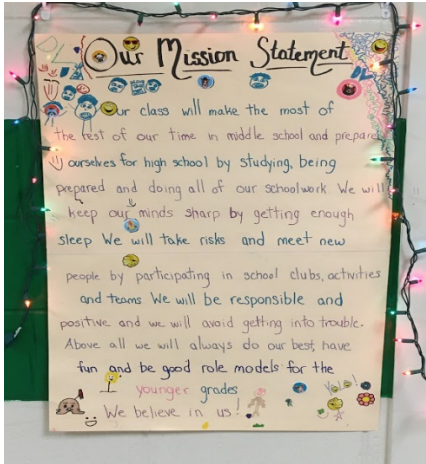 Our Mission Statement
Our class will make the most of
the rest of our time in middle school and prepare
ourselves for high school by studying, being
prepared and doing all of our schoolwork We will
keep our minds sharp by getting enough
sleep We will take risks and meet new
people by participating in school clubs, activities
and teams We will be responsible and
positive and we will avoid getting into trouble.
Above all we will always do our best, have
fun and be good role models for the
younger grades
Yolo!
We believe in us!